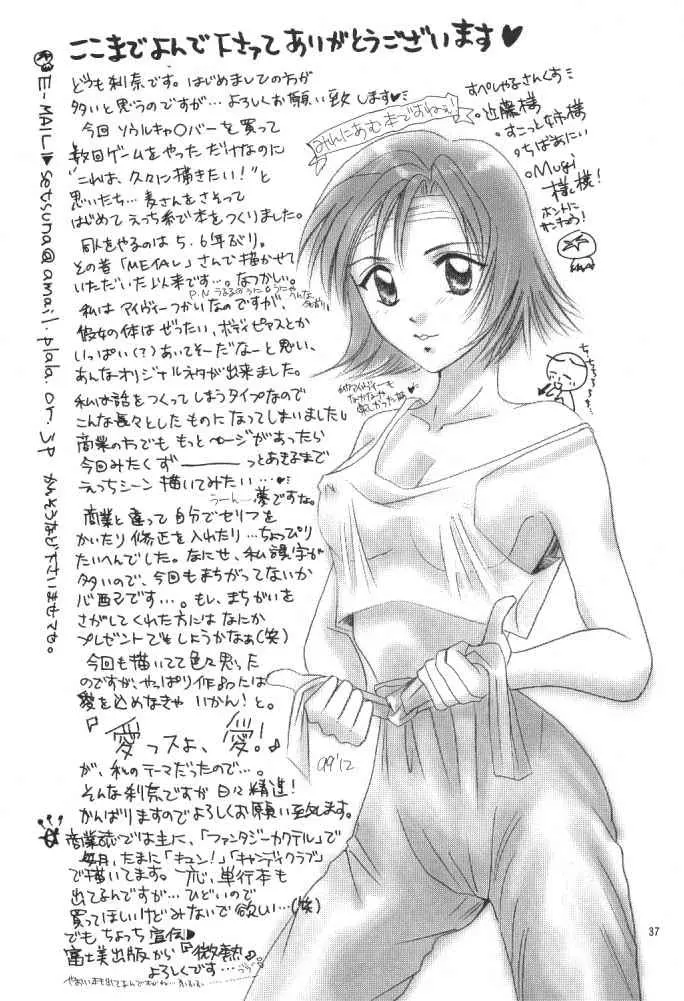 ここまでよんで下さってありがとうございます♥
どうも刹奈です。はじめましての方が
多いと思うのですが…よろしくお願い致します♥
今回ソウルキャ○バーを買って
数回ゲームをやっただけなのに
"これは、久々に描きたい!"と
思いたち…麦さんをさそって
はじめてえっち系で本をつくりました。
同人をやるのは5.6年ぶり。
その昔「METAL」さんで描かせて
いただいた以来です…。なつかしい。
私はアイヴィーつかいなのですが、
彼女の体はぜったい、ボディピアスとか
いっぱい(?)あいてそーだなーと思い、
あんなオリジナルネタが出来ました。
私は話をつくってしまうタイプなので
こんな長々としたものになってしまいました
商業の方でももっとページがあったら
今回みたくず――――っとあきるまで
えっちシーン描いてみたい…♥
うーん…夢ですな。
商業と違って自分でセリフを
かいたり修正を入れたり…ちょっぴり
たいへんでした。なにせ、私誤字が
多いので、今回もまちがってないか
心配です…。もし、まちがいを
さがしてくれた方にはなにか
プレゼントでもしようかなぁ(笑)
今回も描いてて色々思った
のですが、やっぱり作品は
愛を込めなきゃいかん!と。
『愛っスよ、愛!』
が、私のテーマだったので…。
そんな刹奈ですが日々精進!
がんばりますのでよろしくお願い致します。
商業誌では主に、「ファンタジーカクテル」で
毎月、たまに「キュン!」「キャンディクラブ」
で描いてます。一応、単行本も
出てるんですが…ひどいので
買ってほしいけどみないで欲しい…(笑)
でもちょっち宣伝♥
富士美出版から『微熱』
よろしくです…
E-MAIL▶setsuna@amail.plala.or.jp
みんにあむ本ですねぇ!
すぺしゃるさんくす
近藤様
すこっと姉様
ちばあにい
Mugi様
様!
ホントに
99'12
37